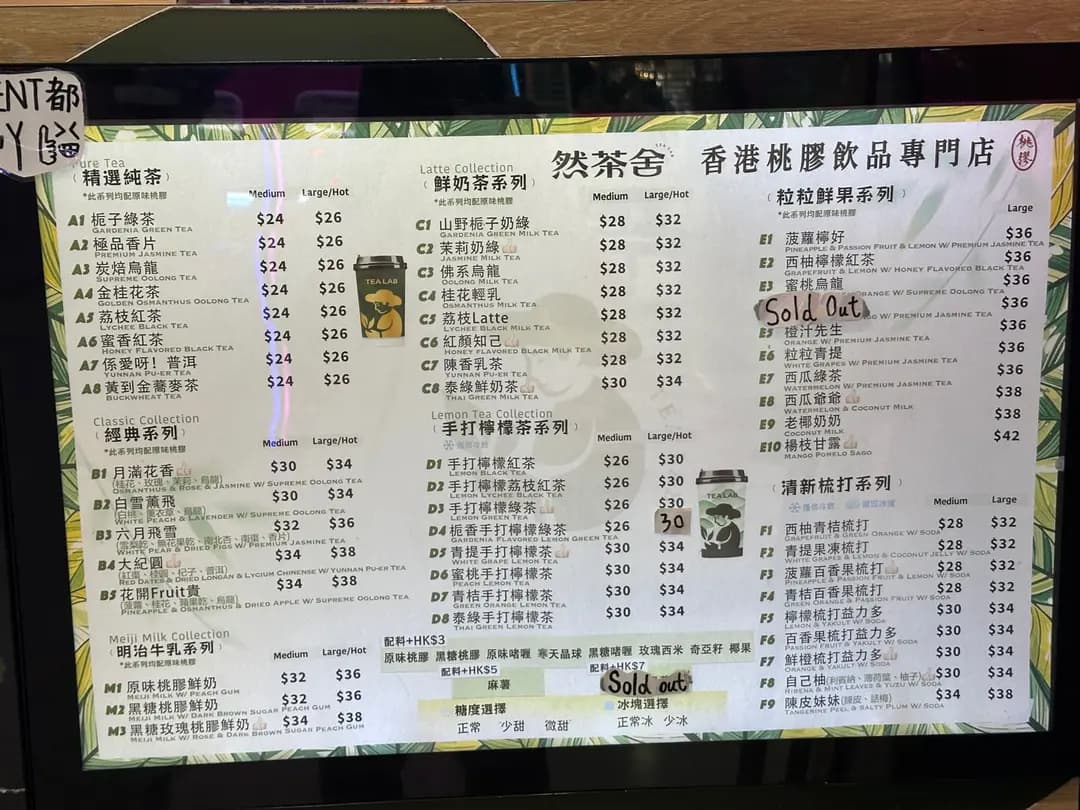 ENT都
然茶舍
香港桃膠飲品專門店
桃膠
Pure Tea
(精選純茶)
*此系列均配原味桃膠
Medium Large/Hot
A1 梔子綠茶 $24 $26
GARDENIA GREEN TEA
A2 極品香片 $24 $26
PREMIUM JASMINE TEA
A3 炭焙烏龍 $24 $26
SUPREME OOLONG TEA
A4 金桂花茶 $24 $26
GOLDEN OSMANTHUS OOLONG TEA
A5 荔枝紅茶 $24 $26
LYCHEE BLACK TEA
A6 蜜香紅茶 $24 $26
HONEY FLAVORED BLACK TEA
A7 係愛呀！普洱 $24 $26
YUNNAN PU-ER TEA
A8 黃到金蕎麥茶 $24 $26
BUCKWHEAT TEA
TEA LAB
Classic Collection
(經典系列)
*此系列均配原味桃膠
Medium Large/Hot
B1 月滿花香 $30 $34
(桂花、玫瑰、茉莉、烏龍)
OSMANTHUS & ROSE & JASMINE W/ SUPREME OOLONG TEA
B2 白雪薰飛 $30 $34
(白桃、薰衣草、烏龍)
WHITE PEACH & LAVENDER W/ SUPREME OOLONG TEA
B3 六月飛雪 $32 $36
(雪梨乾、無花果乾、南北杏、南棗、香片)
WHITE PEAR & DRIED FIGS W/ PREMIUM JASMINE TEA
B4 大紀圓 $34 $38
(紅棗、桂圓、杞子、普洱)
RED DATES & DRIED LONGAN & LYCIUM CHINENSE W/ YUNNAN PU-ER TEA
B5 花開Fruit貴 $34 $38
(菠蘿、桂花、蘋果乾、烏龍)
PINEAPPLE & OSMANTHUS & DRIED APPLE W/ SUPREME OOLONG TEA
Meiji Milk Collection
(明治牛乳系列)
*此系列均配原味桃膠
Medium Large/Hot
M1 原味桃膠鮮奶 $32 $36
MEIJI MILK W/ PEACH GUM
M2 黑糖桃膠鮮奶 $32 $36
MEIJI MILK W/ DARK BROWN SUGAR PEACH GUM
M3 黑糖玫瑰桃膠鮮奶 $34 $38
MEIJI MILK W/ ROSE & DARK BROWN SUGAR PEACH GUM
Latte Collection
(鮮奶茶系列)
*此系列均配原味桃膠
Medium Large/Hot
C1 山野梔子奶綠 $28 $32
GARDENIA GREEN MILK TEA
C2 茉莉奶綠 $28 $32
JASMINE MILK TEA
C3 佛系烏龍 $28 $32
OOLONG MILK TEA
C4 桂花輕乳 $28 $32
OSMANTHUS MILK TEA
C5 荔枝Latte $28 $32
LYCHEE BLACK MILK TEA
C6 紅顏知己 $28 $32
HONEY FLAVORED BLACK MILK TEA
C7 陳香乳茶 $28 $32
YUNNAN PU-ER TEA
C8 泰綠鮮奶茶 $30 $34
THAI GREEN MILK TEA
Lemon Tea Collection
(手打檸檬茶系列)
Medium Large/Hot
D1 手打檸檬紅茶 $26 $30
LEMON BLACK TEA
D2 手打檸檬荔枝紅茶 $26 $30
LEMON LYCHEE BLACK TEA
D3 手打檸檬綠茶 $26 $30
LEMON GREEN TEA
D4 梔香手打檸檬綠茶 $26 30
GARDENIA FLAVORED LEMON GREEN TEA
D5 青提手打檸檬茶 $30 $34
WHITE GRAPE LEMON TEA
D6 蜜桃手打檸檬茶 $30 $34
PEACH LEMON TEA
D7 青桔手打檸檬茶 $30 $34
GREEN ORANGE LEMON TEA
D8 泰綠手打檸檬茶 $30 $34
THAI GREEN LEMON TEA
TEA LAB
配料+HK$3
原味桃膠 黑糖桃膠 原味啫喱 寒天晶球 黑糖啫喱 玫瑰西米 奇亞籽 椰果
配料+HK$5
麻薯
配料+HK$7
Sold out
糖度選擇
正常 少甜 微甜
冰塊選擇
正常冰 少冰
(粒粒鮮果系列)
*此系列均配原味桃膠
Large
E1 菠蘿檸好 $36
PINEAPPLE & PASSION FRUIT & LEMON W/ PREMIUM JASMINE TEA
E2 西柚檸檬紅茶 $36
GRAPEFRUIT & LEMON W/ HONEY FLAVORED BLACK TEA
E3 蜜桃烏龍 $36
ORANGE W/ SUPREME OOLONG TEA
Sold Out $36
GO W/ PREMIUM JASMINE TEA
E5 橙汁先生 $36
ORANGE W/ PREMIUM JASMINE TEA
E6 粒粒青提 $36
WHITE GRAPES W/ PREMIUM JASMINE TEA
E7 西瓜綠茶 $36
WATERMELON W/ PREMIUM JASMINE TEA
E8 西瓜爺爺 $38
WATERMELON & COCONUT MILK
E9 老椰奶奶 $38
COCONUT MILK
E10 楊枝甘露 $42
MANGO POMELO SAGO
(清新梳打系列)
Medium Large
F1 西柚青桔梳打 $28 $32
GRAPEFRUIT & GREEN ORANGE W/ SODA
F2 青提果凍梳打 $28 $32
WHITE GRAPE & LEMON & COCONUT JELLY W/ SODA
F3 菠蘿百香果梳打 $28 $32
PINEAPPLE & PASSION FRUIT & LEMON W/ SODA
F4 青桔百香果梳打 $28 $32
GREEN ORANGE & PASSION FRUIT W/ SODA
F5 檸檬梳打益力多 $30 $34
LEMON & YAKULT W/ SODA
F6 百香果梳打益力多 $30 $34
PASSION FRUIT & YAKULT W/ SODA
F7 鮮橙梳打益力多 $30 $34
ORANGE & YAKULT W/ SODA
F8 自己柚(利賓納、薄荷葉、柚子) $30 $34
RIBENA & MINT LEAVES & YUZU W/ SODA
F9 陳皮妹妹(陳皮、話梅) $34 $38
TANGERINE PEEL & SALTY PLUM W/ SODA